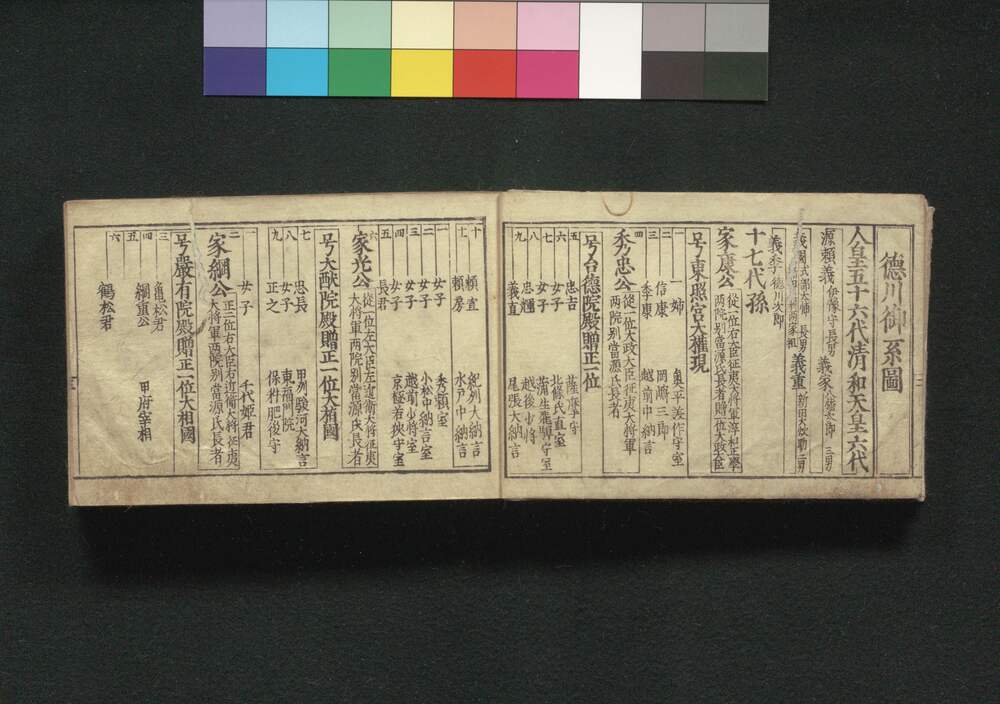 德川御系圖
人皇五十六代清和天皇六代
源頼義 伊豫守長男 義家 八幡太郎 三男
義國 式部太輔 長男 義重 新田大炊助 二男
義季 德川次郎
十七代孫
家康公 從一位右大臣征夷大將軍淳和正學
两院别當源氏長者贈一位大政大臣
号東照宮大權現
一 姉 奥平美作守室
二 信康 岡崎三郎
三 季康 越前中納言
四
秀忠公 從一位大政大臣征夷大將軍
两院别當源氏長者
号台德院殿贈正一位
五 忠吉 薩摩守
六 女子 北條氏直室
七 女子 蒲生飛騨守室
八 忠輝 越後少将
九 義直 尾張大納言
十 頼宣 紀列大納言
十一 頼房 水戸中納言
一 女子 秀頼室
二 女子 小松中納言室
三 女子 越前少將室
四 女子 京極若狹守室
五 長君
六
家光公 從一位左大臣左近衛大将征夷
大将軍两院别當源氏長者
号大猷院殿贈正一位大相國
七 忠長 甲列駿河大納言
八 女子 東福門院
九 正之 保科肥後守
一 女子 千代姫君
二
家綱公 正二位右大臣右近衛大將征夷
大將軍两院别當源氏長者
号嚴有院殿贈正一位大相國
三 亀松君
四 綱重公 甲府宰相
五
六 鶴松君